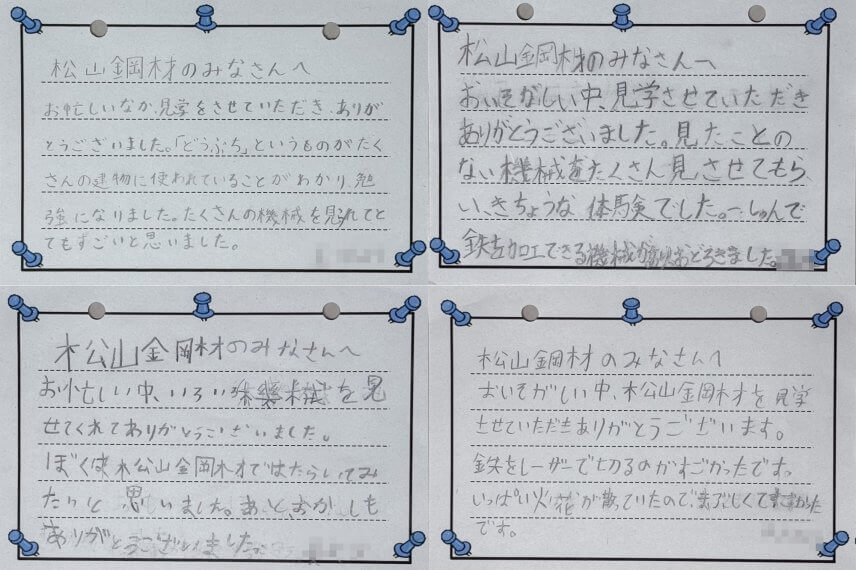 松山鋼材のみなさんへ
お忙しいなか、見学をさせていただき、ありが
とうございました。「どうぶち」というものがたく
さんの建物に使われていることがわかり、勉
強になりました。たくさんの機械を見れてと
てもすごいと思いました。
松山鋼材のみなさんへ
おいそがしい中、見学させていただき
ありがとうございました。見たことの
ない機械をたくさん見させてもら
い、きちょうな体験でした。一しゅんで
鉄を加工できる機械がありおどろきました。
松山鋼材のみなさんへ
お忙しい中、いろいろ機械を見
せてくれてありがとうございました。
ぼくは松山鋼材ではたらいてみ
たいと思いました。あと、おかしも
ありがとうございました。
松山鋼材のみなさんへ
おいそがしい中、松山鋼材を見学
させていただきありがとうございます。
鉄をレーザーで切るのがすごかったです。
いっぱい火花が散っていたのでまぶしくて
です。